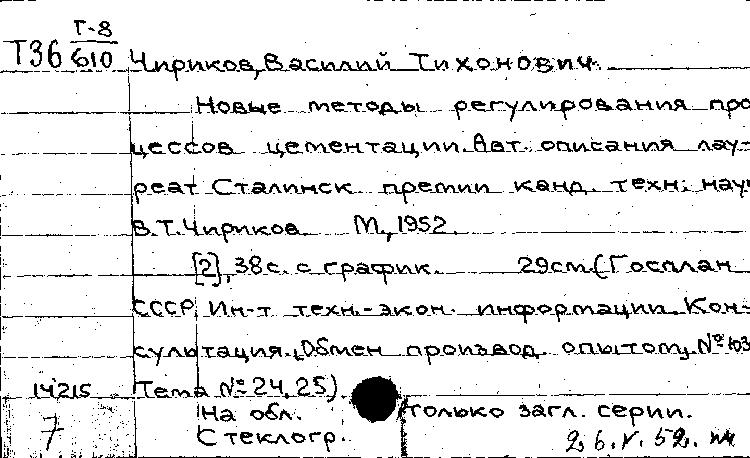 Т-8
Т36 610 Чириков, Василий Тихонович.
Новые методы регулирования про
цессов цементации. Авт. описания лау-
реат Сталинск. премии канд. техн. наук
В.Т. Чириков. М., 1952.
[2], 38 с. с график. 29 см. (Госплан
СССР, Ин-т техн.-экон. информации. Кон-
сультация. Обмен производ. опытом,
14215 Тема № 24, 25)
7 На обл. только загл. серии.
Стеклогр. 2.6.V.52.